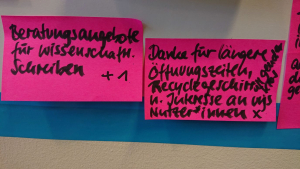 Beratungsangebote
für wissenschaftl.
Schreiben +1
Danke für längere
Öffnungszeiten,
Recyclegeschirr
u. Interesse an uns
Nutzer*innen x